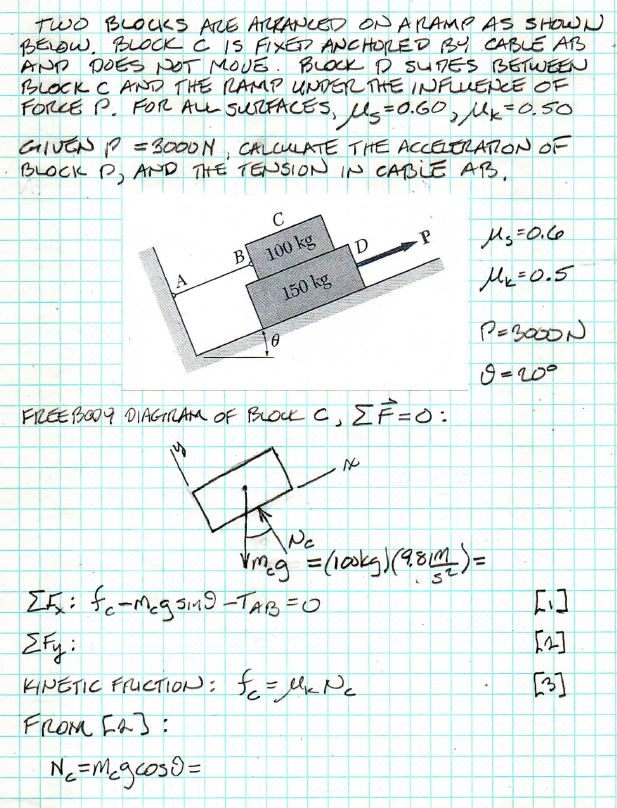 TWO BLOCKS ARE ARRANGED ON A RAMP AS SHOWN
BELOW. BLOCK C IS FIXED ANCHORED BY CABLE AB
AND DOES NOT MOVE. BLOCK D SLIDES BETWEEN
BLOCK C AND THE RAMP UNDER THE INFLUENCE OF
FORCE P. FOR ALL SURFACES, μs=0.60, μk=0.50
GIVEN P = 3000N, CALCULATE THE ACCELERATION OF
BLOCK D, AND THE TENSION IN CABLE AB.
C
B 100 kg D P
A
150 kg
θ
μs=0.6
μk=0.5
P=3000N
θ=20°
FREEBODY DIAGRAM OF BLOCK C, ΣF⃗=0:
y
x
Nc
mcg =(100kg)(9.81 m/s²)=
ΣFx: fc-mcg sinθ-TAB=0 [1]
ΣFy: [2]
KINETIC FRICTION: fc=μkNc [3]
FROM [2]:
Nc=mcgcosθ=